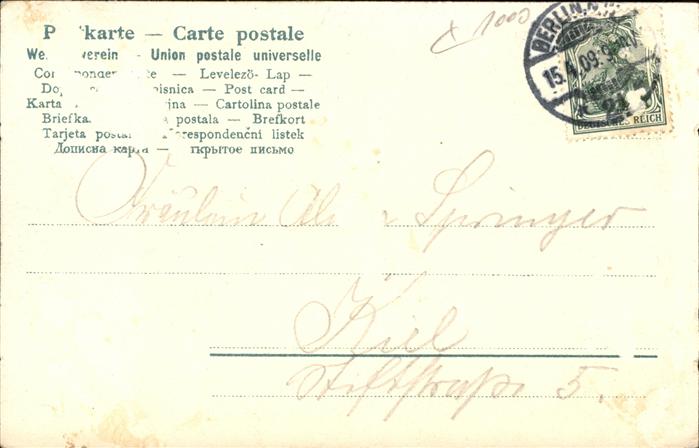 P karte — Carte postale
We verein - Union postale universelle
Cor te — Levelező-Lap —
Do isnica — Post card —
Karta jna — Cartolina postale
Briefka postala — Brefkort
Tarjeta posta respondenční listek
Дописна карта — ткрытое письмо
x 1000
BERLIN.N.
15.4.09.9
* 24
DEUTSCHES REICH
Fräulein Springer
Kiel
Stiftstraße 5.